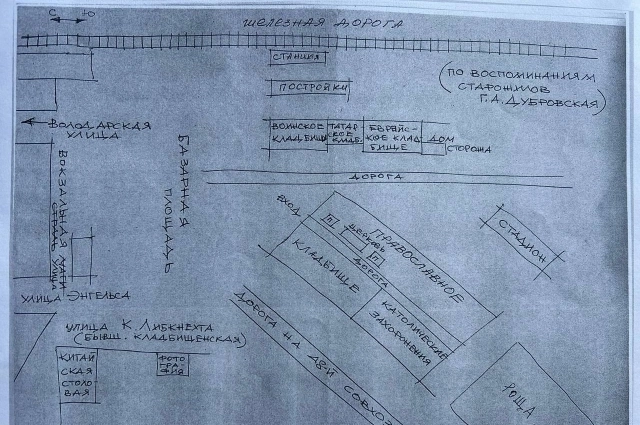 С Ю
ЖЕЛЕЗНАЯ ДОРОГА
СТАНЦИЯ
ПОСТРОЙКИ
(ПО ВОСПОМИНАНИЯМ
СТАРОЖИЛОВ
Г.А. ДУБРОВСКАЯ)
ВОЛОДАРСКАЯ
УЛИЦА
ВОИНСКОЕ
КЛАДБИЩЕ
ТАТАР-
СКОЕ
КЛАДБ.
ЕВРЕЙС-
КОЕ КЛАД
БИЩЕ
ДОМ
СТОРОЖА
ВОКЗАЛЬНАЯ МАГИ
СТРАЛЬ УЛИЦА
БАЗАРНАЯ
ПЛОЩАДЬ
ДОРОГА
ВХОД
ПРАВОСЛАВНОЕ
П
ЦЕРКОВЬ
П
ДОРОГА
КЛАДБИЩЕ
КАТОЛИЧЕСКИЕ
ЗАХОРОНЕНИЯ
СТАДИОН
УЛИЦА ЭНГЕЛЬСА
УЛИЦА К. ЛИБКНЕХТА
(БЫВШ. КЛАДБИЩЕНСКАЯ)
КИТАЙ
СКАЯ
СТОЛО
ВАЯ
ФОТО
ГРА-
ФИЯ
ДОРОГА НА 48-Й СОВХОЗ
РОЩА